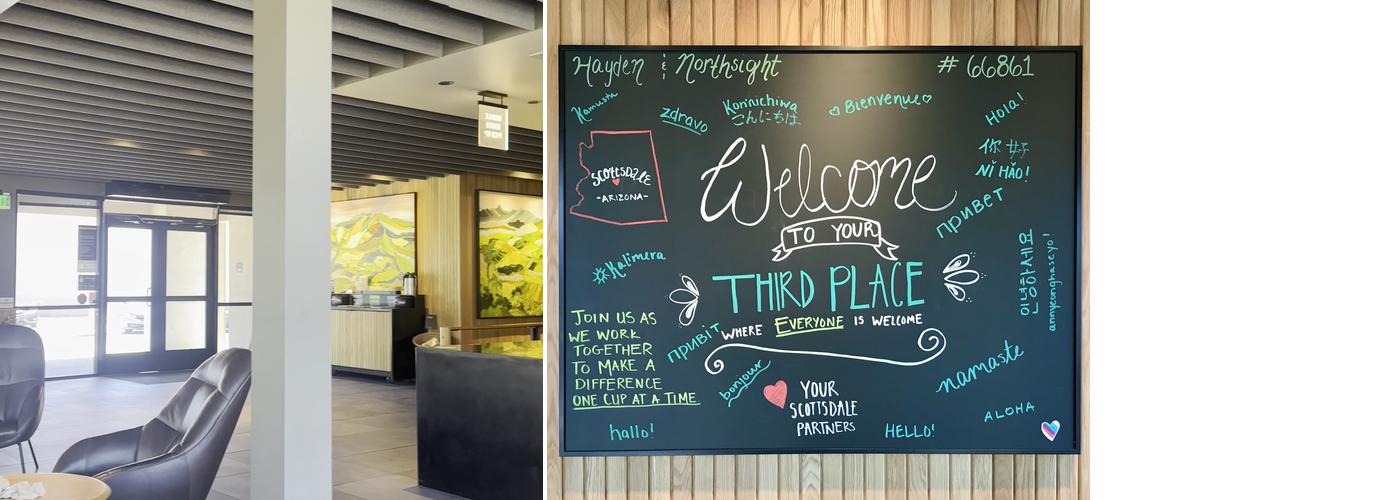 Hayden & Northsight
# 66861
Kamusta
zdravo
Konnichiwa
こんにちは
Bienvenue
Hola!
你好
NǏ HǍO!
привет
Scottsdale
-ARIZONA-
Welcome
TO YOUR
THIRD PLACE
WHERE EVERYONE IS WELCOME
Kalimera
안녕하세요
annyeonghaseyo!
JOIN US AS
WE WORK
TOGETHER
TO MAKE A
DIFFERENCE
ONE CUP AT A TIME
привіт
bonjour
YOUR
SCOTTSDALE
PARTNERS
namaste
ALOHA
hallo!
HELLO!